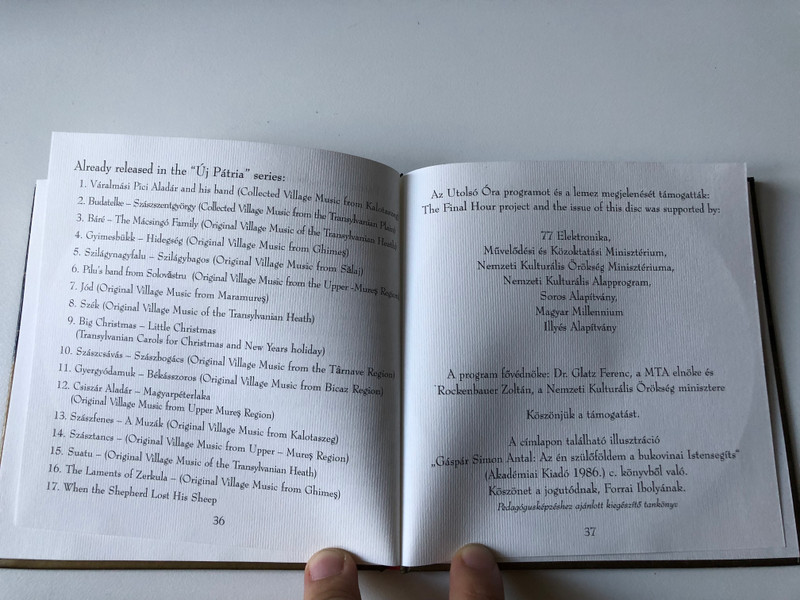 Already released in the "Új Pátria" series:
1. Váralmási Pici Aladár and his band (Collected Village Music from Kalotaszeg)
2. Budatelke – Szászszentgyörgy (Collected Village Music from the Transylvanian Plain)
3. Báré – The Mácsingó Family (Original Village Music of the Transylvanian Heath)
4. Gyimesbükk – Hidegség (Original Village Music from Ghimeş)
5. Szilágynagyfalu – Szilágybagos (Original Village Music from Sălaj)
6. Pilu's band from Solovăstru (Original Village Music from the Upper -Mureş Region)
7. Jód (Original Village Music from Maramureş)
8. Szék (Original Village Music of the Transylvanian Heath)
9. Big Christmas – Little Christmas
(Transylvanian Carols for Christmas and New Years holiday)
10. Szászcsávás – Szászbogács (Original Village Music from the Târnave Region)
11. Gyergyódamuk – Békásszoros (Original Village Music from Bicaz Region)
12. Csiszár Aladár – Magyarpéterlaka
(Original Village Music from Upper Mureş Region)
13. Szászfenes – A Muzák (Original Village Music from Kalotaszeg)
14. Szásztancs – (Original Village Music from Upper – Mureş Region)
15. Suatu – (Original Village Music of the Transylvanian Heath)
16. The Laments of Zerkula – (Original Village Music from Ghimeş)
17. When the Shepherd Lost His Sheep
36
Az Utolsó Óra programot és a lemez megjelenését támogatták:
The Final Hour project and the issue of this disc was supported by:
77 Elektronika,
Művelődési és Közoktatási Minisztérium,
Nemzeti Kulturális Örökség Minisztériuma,
Nemzeti Kulturális Alapprogram,
Soros Alapítvány,
Magyar Millennium
Illyés Alapítvány
A program fővédnöke: Dr. Glatz Ferenc, a MTA elnöke és
Rockenbauer Zoltán, a Nemzeti Kulturális Örökség minisztere
Köszönjük a támogatást.
A címlapon található illusztráció
„Gáspár Simon Antal: Az én szülőföldem a bukovinai Istensegíts"
(Akadémiai Kiadó 1986.) c. könyvből való.
Köszönet a jogutódnak, Forrai Ibolyának.
Pedagógusképzéshez ajánlott kiegészítő tankönyv
37